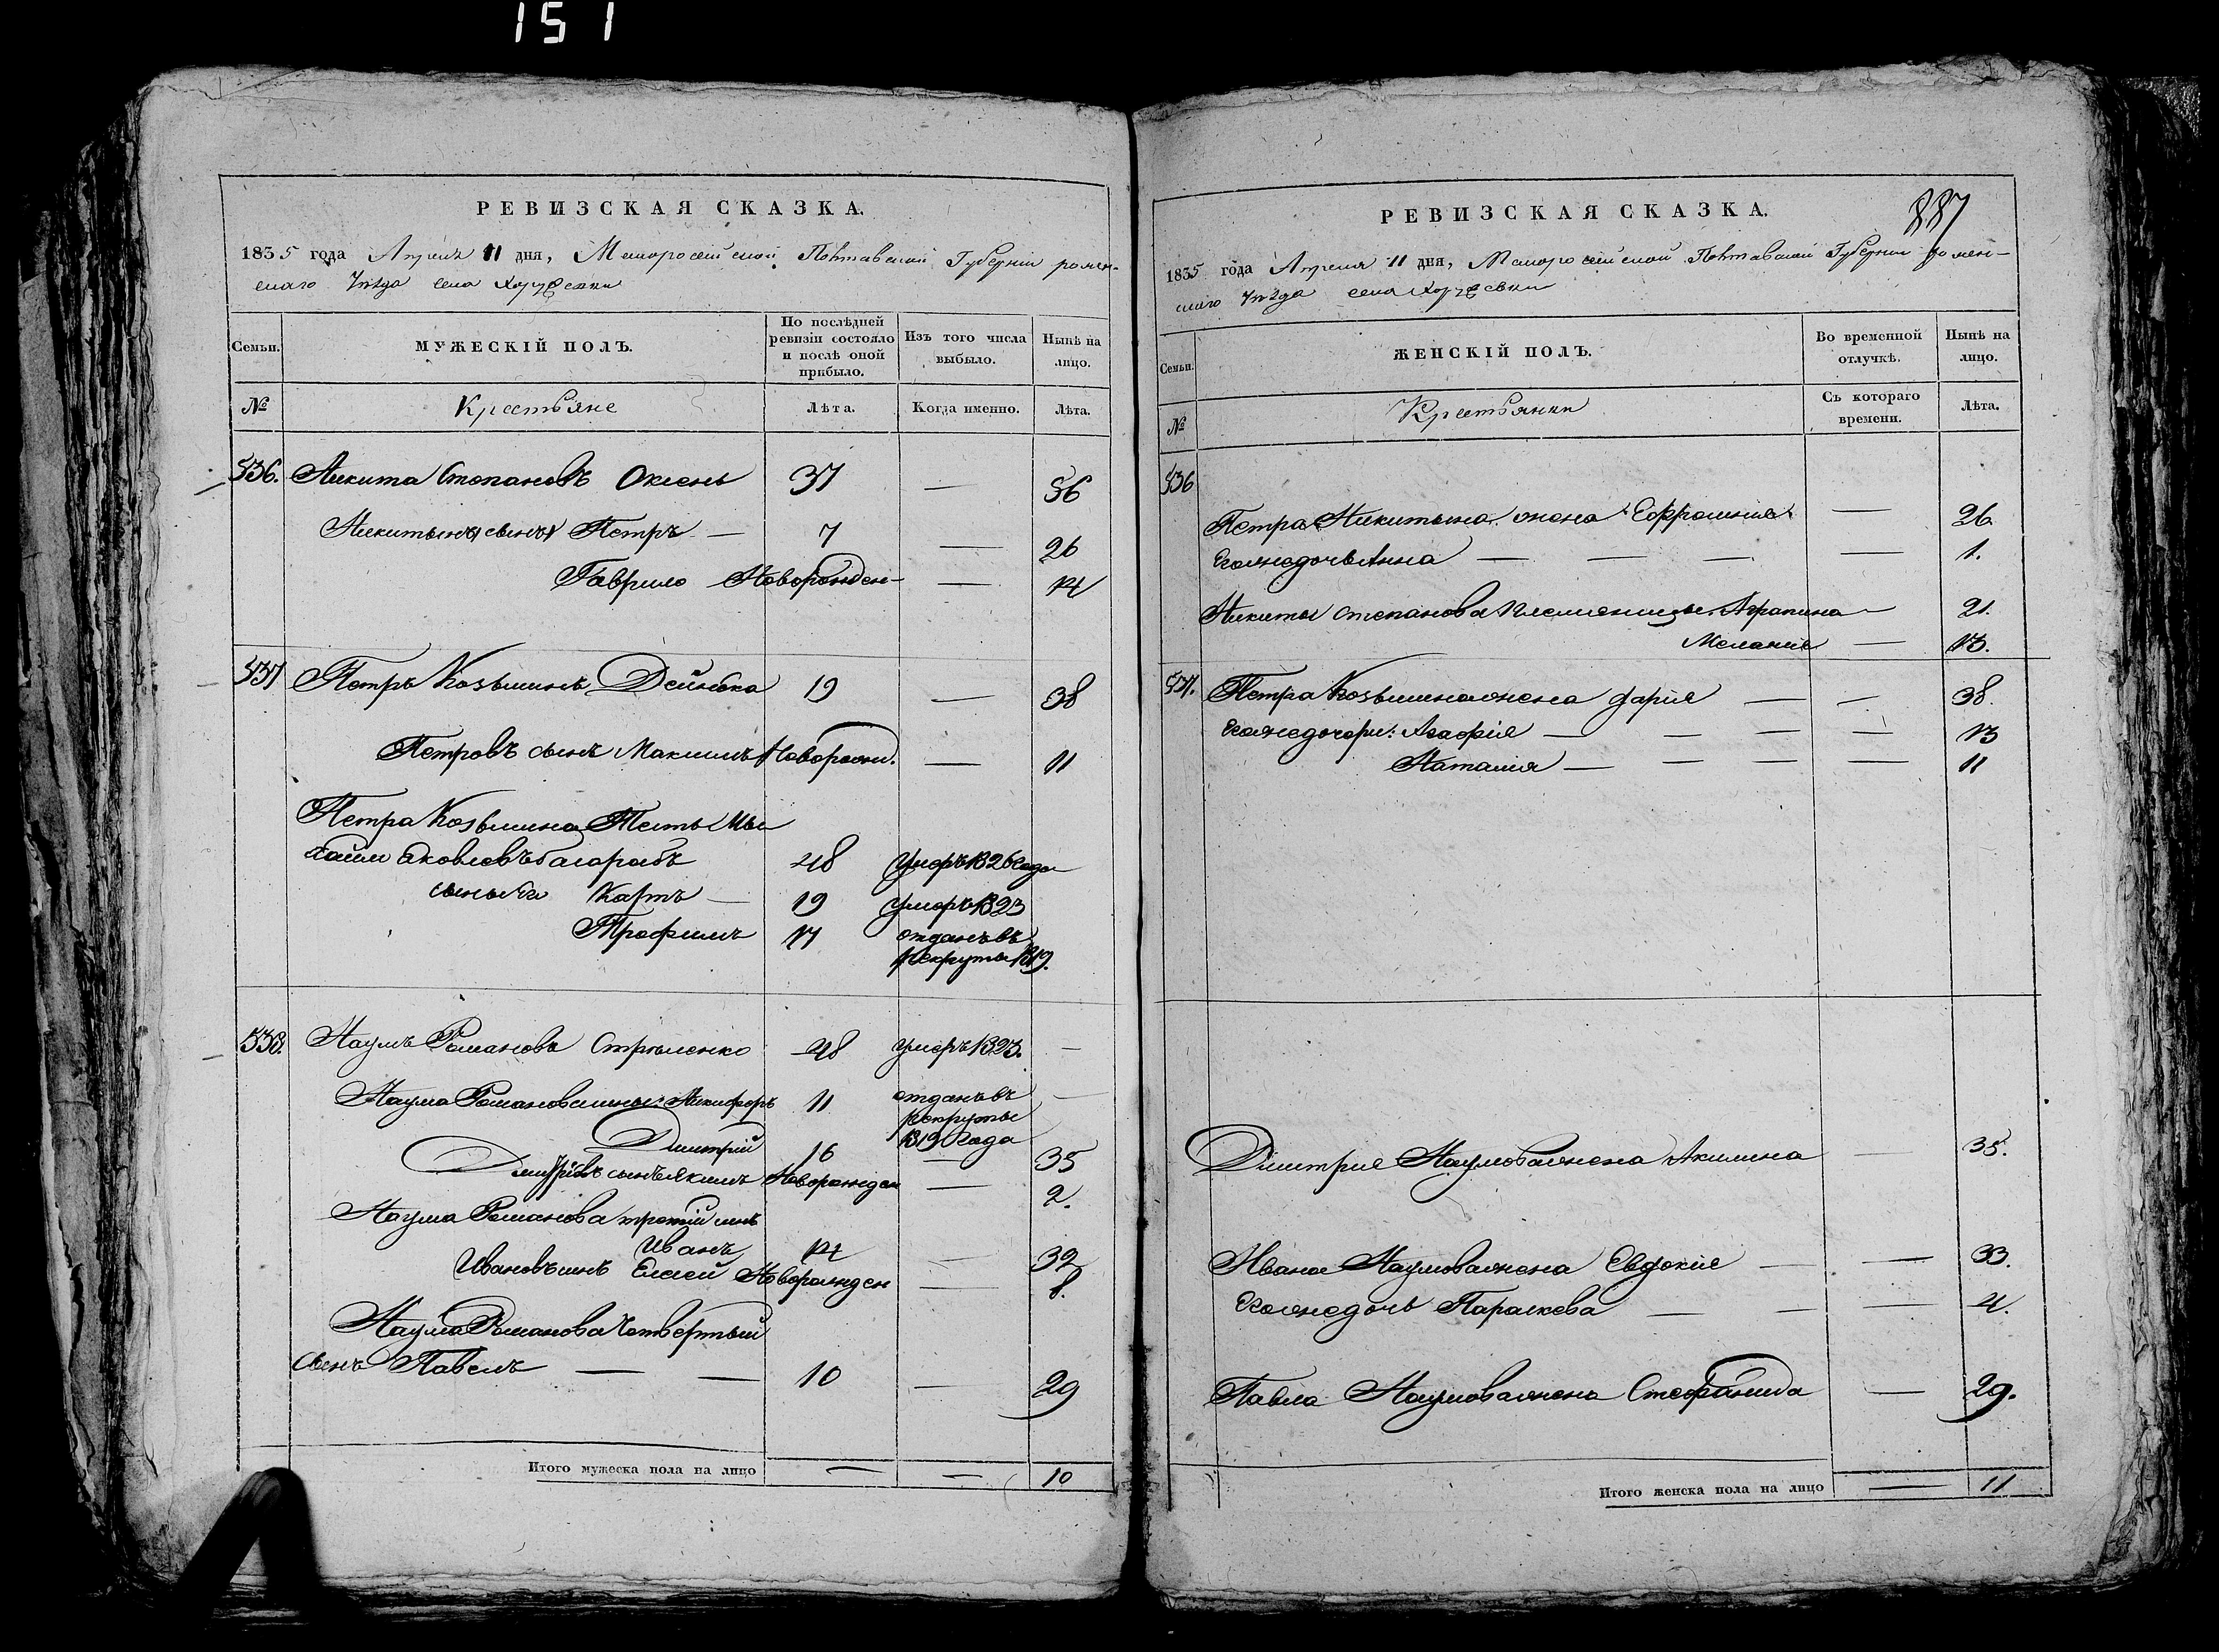 151
РЕВИЗСКАЯ СКАЗКА.
1835 года Апреля 11 дня, Малоросейской Полтавской Губернии ромен-
скаго Уѣзда села
Семьи.
МУЖЕСКІЙ ПОЛЪ.
По послѣдней ревизіи состояло и послѣ оной прибыло.
Изъ того числа выбыло.
Нынѣ на лицо.
№
Крестьяне
Лѣта.
Когда именно.
Лѣта.
536. Никита Степановъ Оксень 37 — 56
Никитины сыновья Петръ — 7 — 26
Гаврило Новорожден — 14
537 Петръ Козьминъ Дейнека 19 — 38
Петровъ сынъ Максимъ Новорожд. — 11
Петра Козьмина Тесть Ми
хаилъ Яковлевъ 48 Умеръ 1826 года
сыны его Карпъ — 19 умеръ 1823
Трофимъ 17 отданъ въ
рекруты 1819.
538. Наумъ Романовъ 48 умеръ 1823. —
Наума Романова сыны: Никифоръ 11 отданъ въ —
рекруты
1819 года
Дмитрій 16 — 35
Дмитріевъ сынъ Якимъ Новорожден — 2.
Наума Романова третій сынъ
Иванъ 14 — 32
Ивановъ сынъ Елисей Новорожден — 8.
Наума Романова четвертый
сынъ Павелъ — — 10 — 29
Итого мужеска пола на лицо — — 10
887
РЕВИЗСКАЯ СКАЗКА.
1835 года Апреля 11 дня, Малоросейской Полтавской Губернии ромен-
скаго Уѣзда села
Семьи.
ЖЕНСКІЙ ПОЛЪ.
Во временной отлучкѣ.
Нынѣ на лицо.
№
Крестьянки
Съ котораго времени.
Лѣта.
536
Петра Никитина жена Ефросинія — 26
Его же дочь Анна — — — — 1.
Никиты Степанова племянницы Агрипина — 21.
Меланія — 13.
537. Петра Козьмина жена Дарія — — 38.
Его же дочери: Агафія — — — — 13
Наталія — — — — 11
Дмитрія Наумова жена Акилина — 35.
Ивана Наумова жена Евдокія — — 33.
Его же дочь Параскева — — — 4.
Павла Наумова жена Стефанида — 29.
Итого женска пола на лицо — 11